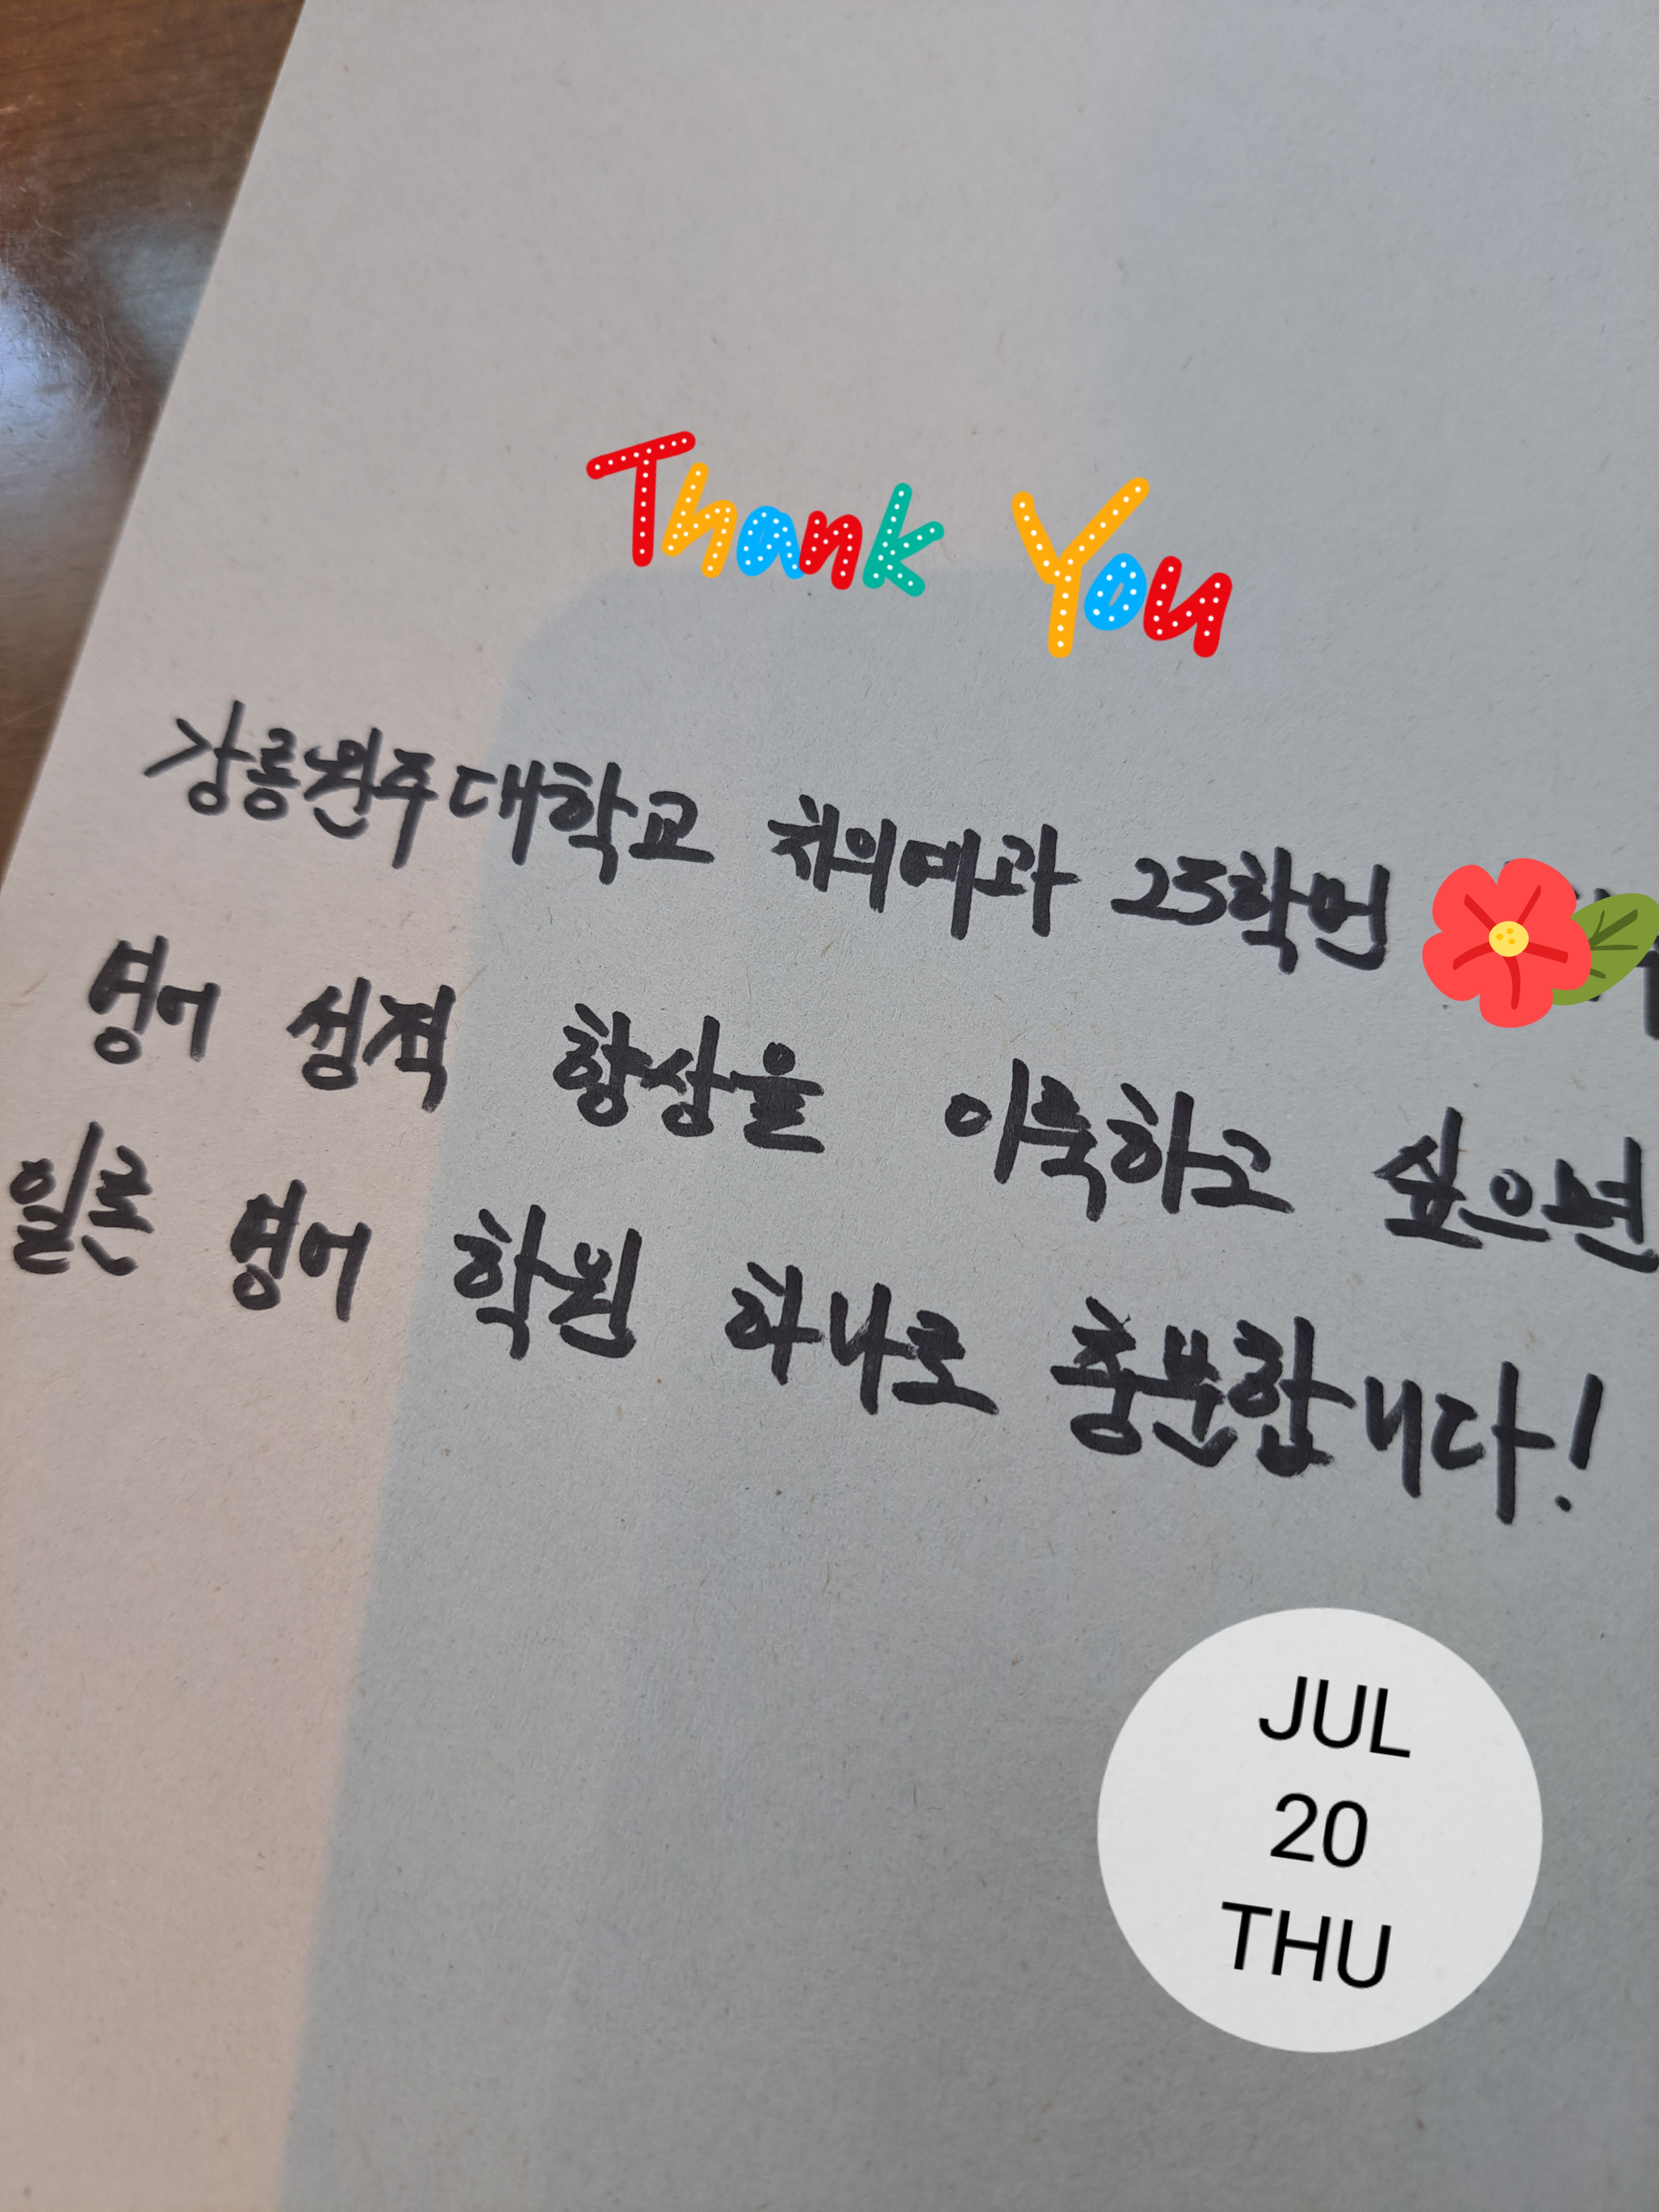 Thank You
강릉원주대학교 치의예과 23학번
영어 성적 향상을 이룩하고 싶으면
일론 영어 학원 하나로 충분합니다!
JUL
20
THU